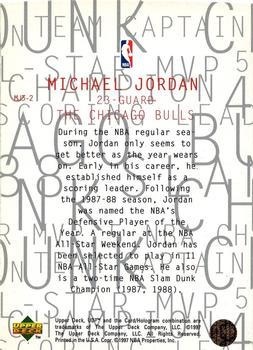 MJ3-2
MICHAEL JORDAN
23-GUARD
THE CHICAGO BULLS
During the NBA regular sea-
son, Jordan only seems to
get better as the year wears
on. Early in his career, he
established himself as a
scoring leader. Following
the 1987-88 season, Jordan
was named the NBA's
Defensive Player of the
Year. A regular at the NBA
All-Star Weekend, Jordan has
been selected to play in 11
NBA All-Star Games. He is also
a two-time NBA Slam Dunk
Champion (1987, 1988).
UPPER DECK
Upper Deck, UD3 and the Card/Hologram combination are
trademarks of The Upper Deck Company, LLC. ©1997
The Upper Deck Company, LLC. All Rights Reserved.
Printed in the U.S.A. ©1997 NBA Properties, Inc.